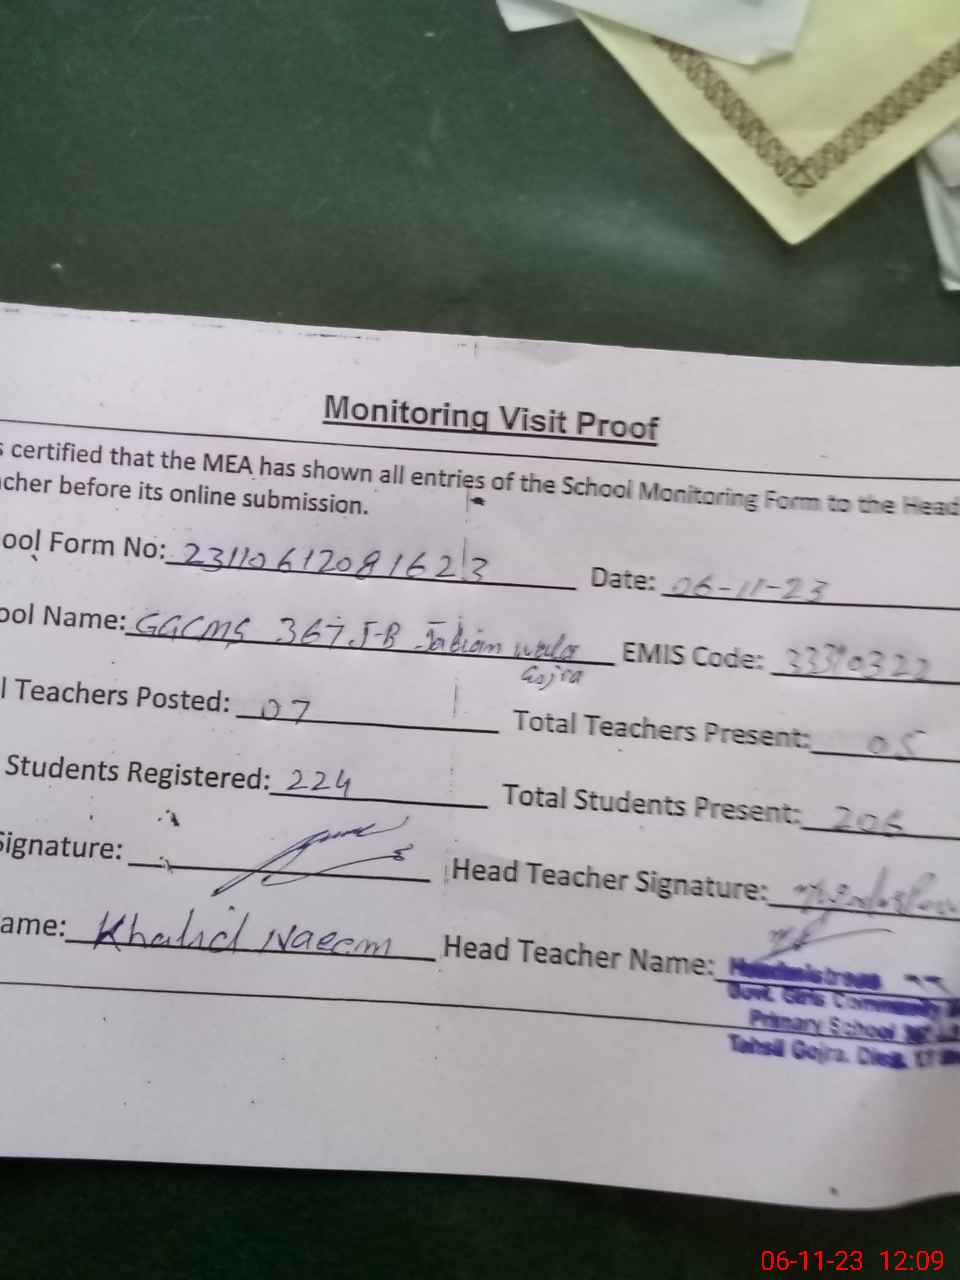 Monitoring Visit Proof
s certified that the MEA has shown all entries of the School Monitoring Form to the Head
cher before its online submission.
ool Form No: 23110612081623 Date: 06-11-23
ool Name: GGCMS 367 J-B Wala EMIS Code:
Gojra
l Teachers Posted: 07 Total Teachers Present: 05
Students Registered: 224 Total Students Present: 206
Signature: Head Teacher Signature:
ame: Khalid Naeem Head Teacher Name: Headmistress
Govt. Girls Community
Primary School
Tehsil Gojra. Distt.
06-11-23 12:09